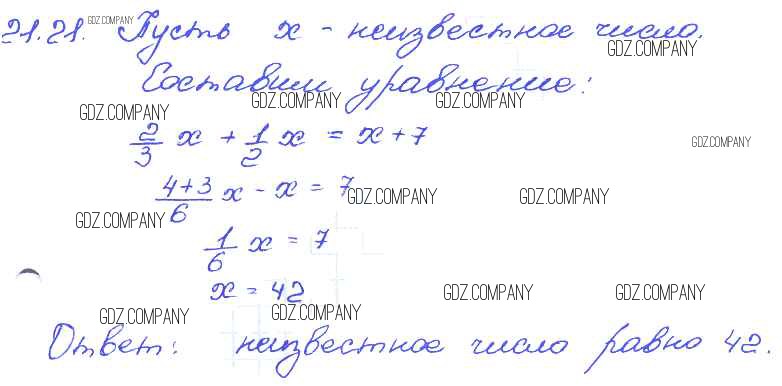 21.21. GDZ.COMPANY Пусть x - неизвестное число.
GDZ.COMPANY
Составим уравнение:
GDZ.COMPANY GDZ.COMPANY GDZ.COMPANY
2/3 x + 1/2 x = x + 7
GDZ.COMPANY
(4+3)/6 x - x = 7
GDZ.COMPANY GDZ.COMPANY GDZ.COMPANY
1/6 x = 7
GDZ.COMPANY
x = 42
GDZ.COMPANY GDZ.COMPANY GDZ.COMPANY GDZ.COMPANY
Ответ: неизвестное число равно 42.